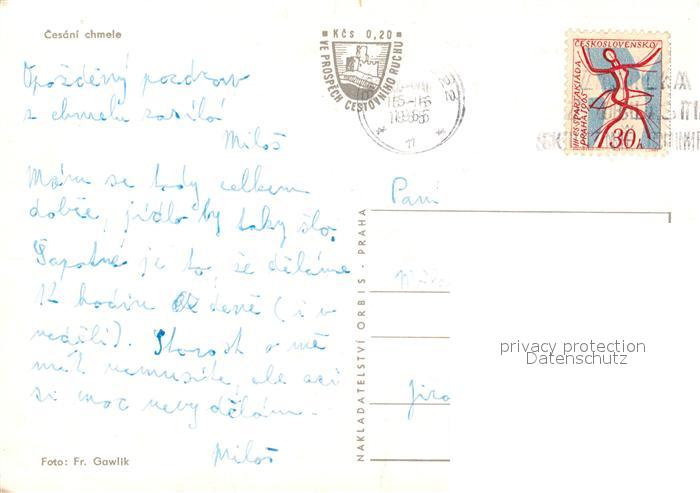 Česání chmele
Opožděný pozdrav
z chmelu zasílá
Miloš
Mám se tady celkem
dobře, jídlo by taky šlo.
Špatné je to, že děláme
12 hodin denně (i v
neděli). Starost o mě
mít nemusíte, ale asi
si moc nevydělám.
Miloš
Foto: Fr. Gawlik
Kčs 0,20
VE PROSPĚCH CESTOVNÍHO RUCHU
ČESKOSLOVENSKO
SPARTAKIÁDA
PRAHA 1965
30
NAKLADATELSTVÍ ORBIS - PRAHA
Paní
privacy protection
Datenschutz